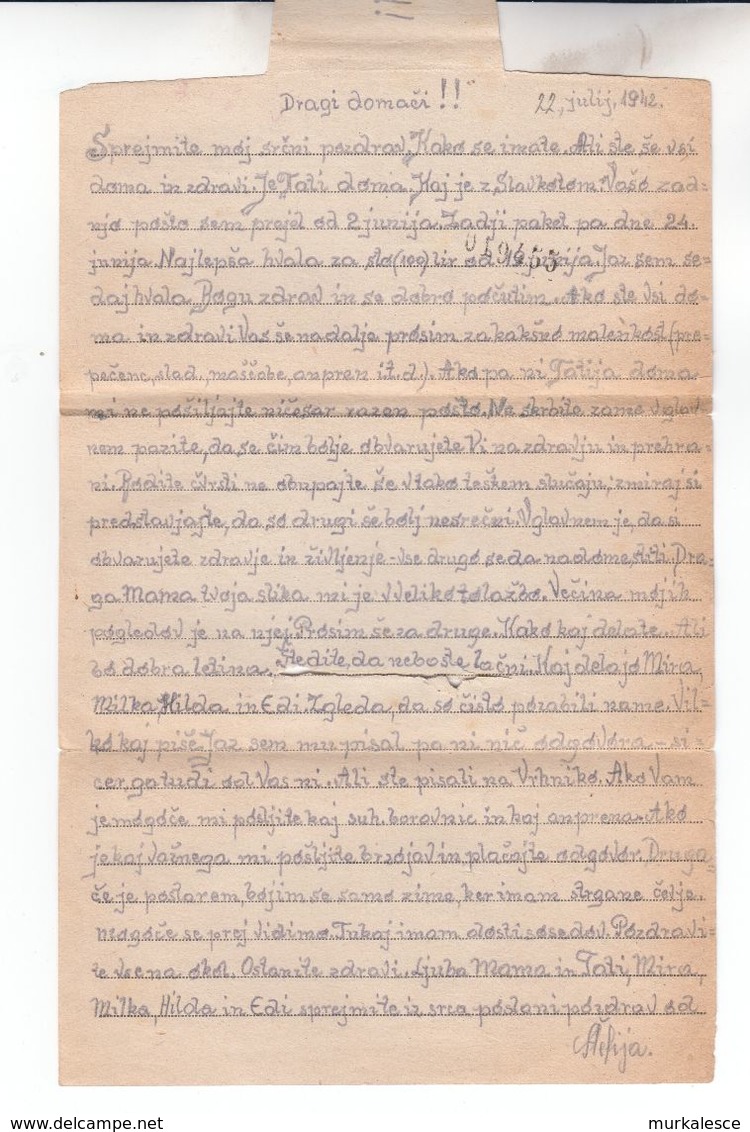 Dragi domači!! 22. julij, 1942.
Sprejmite moj srčni pozdrav. Kako se imate. Ali ste še vsi
doma in zdravi. Je Tati doma. Kaj je z Slavkotom. Vašo zad=
njo pošto sem prejel od 2 junija. Zadji paket pa dne 24.
junija. Najlepša hvala za sto (100) lir od junija. Jaz sem se=
daj hvala Bogu zdrav in se dobro počutim. Ako ste vsi do=
ma in zdravi Vas še nadalje prosim za kakšno malenkost (pre=
pečenc, slad, maščobe, anpren i.t.d.). Ako pa ni Tatija doma
mi ne pošiljajte ničesar razen pošto. Ne skrbite zame v glav=
nem pazite, da se čim bolje obvarujete Vi na zdravju in prehra=
ni. Bodite čvrsti ne obupajte še v tako teškem slučaju, zmiraj si
predstavjajte, da so drugi še bolj nesrečni. V glavnem je, da si
obvarujete zdravje in življenje - vse drugo se da nadomestiti. Dra=
ga Mama tvoja slika mi je v veliko tolažbo. Večina mojih
pogledov je na njej. Prosim še za druge. Kako kaj delate. Ali
bo dobra letina. Štedite, da ne boste lačni. Kaj delajo Mira,
Milka, Hilda in Edi. Zgleda, da so čisto pozabili name. Vil=
ko kaj piše. Jaz sem mu pisal pa ni nič odgovora - si=
cer ga tudi od Vas ni. Ali ste pisali na Vrhniko. Ako Vam
je mogoče mi pošljite kaj suh. borovnic in kaj anprena. Ako
je kaj važnega mi pošljite brzojav in plačajte odgovor. Druga=
če je po starem, bojim se samo zime, ker imam strgane čevlje.
Mogoče se prej vidimo. Tukaj imam dosti sosedov. Pozdravi=
te vse na okol. Ostanite zdravi. Ljuba Mama in Tati, Mira,
Milka, Hilda in Edi sprejmite iz srca poslani pozdrav od
murkalesce